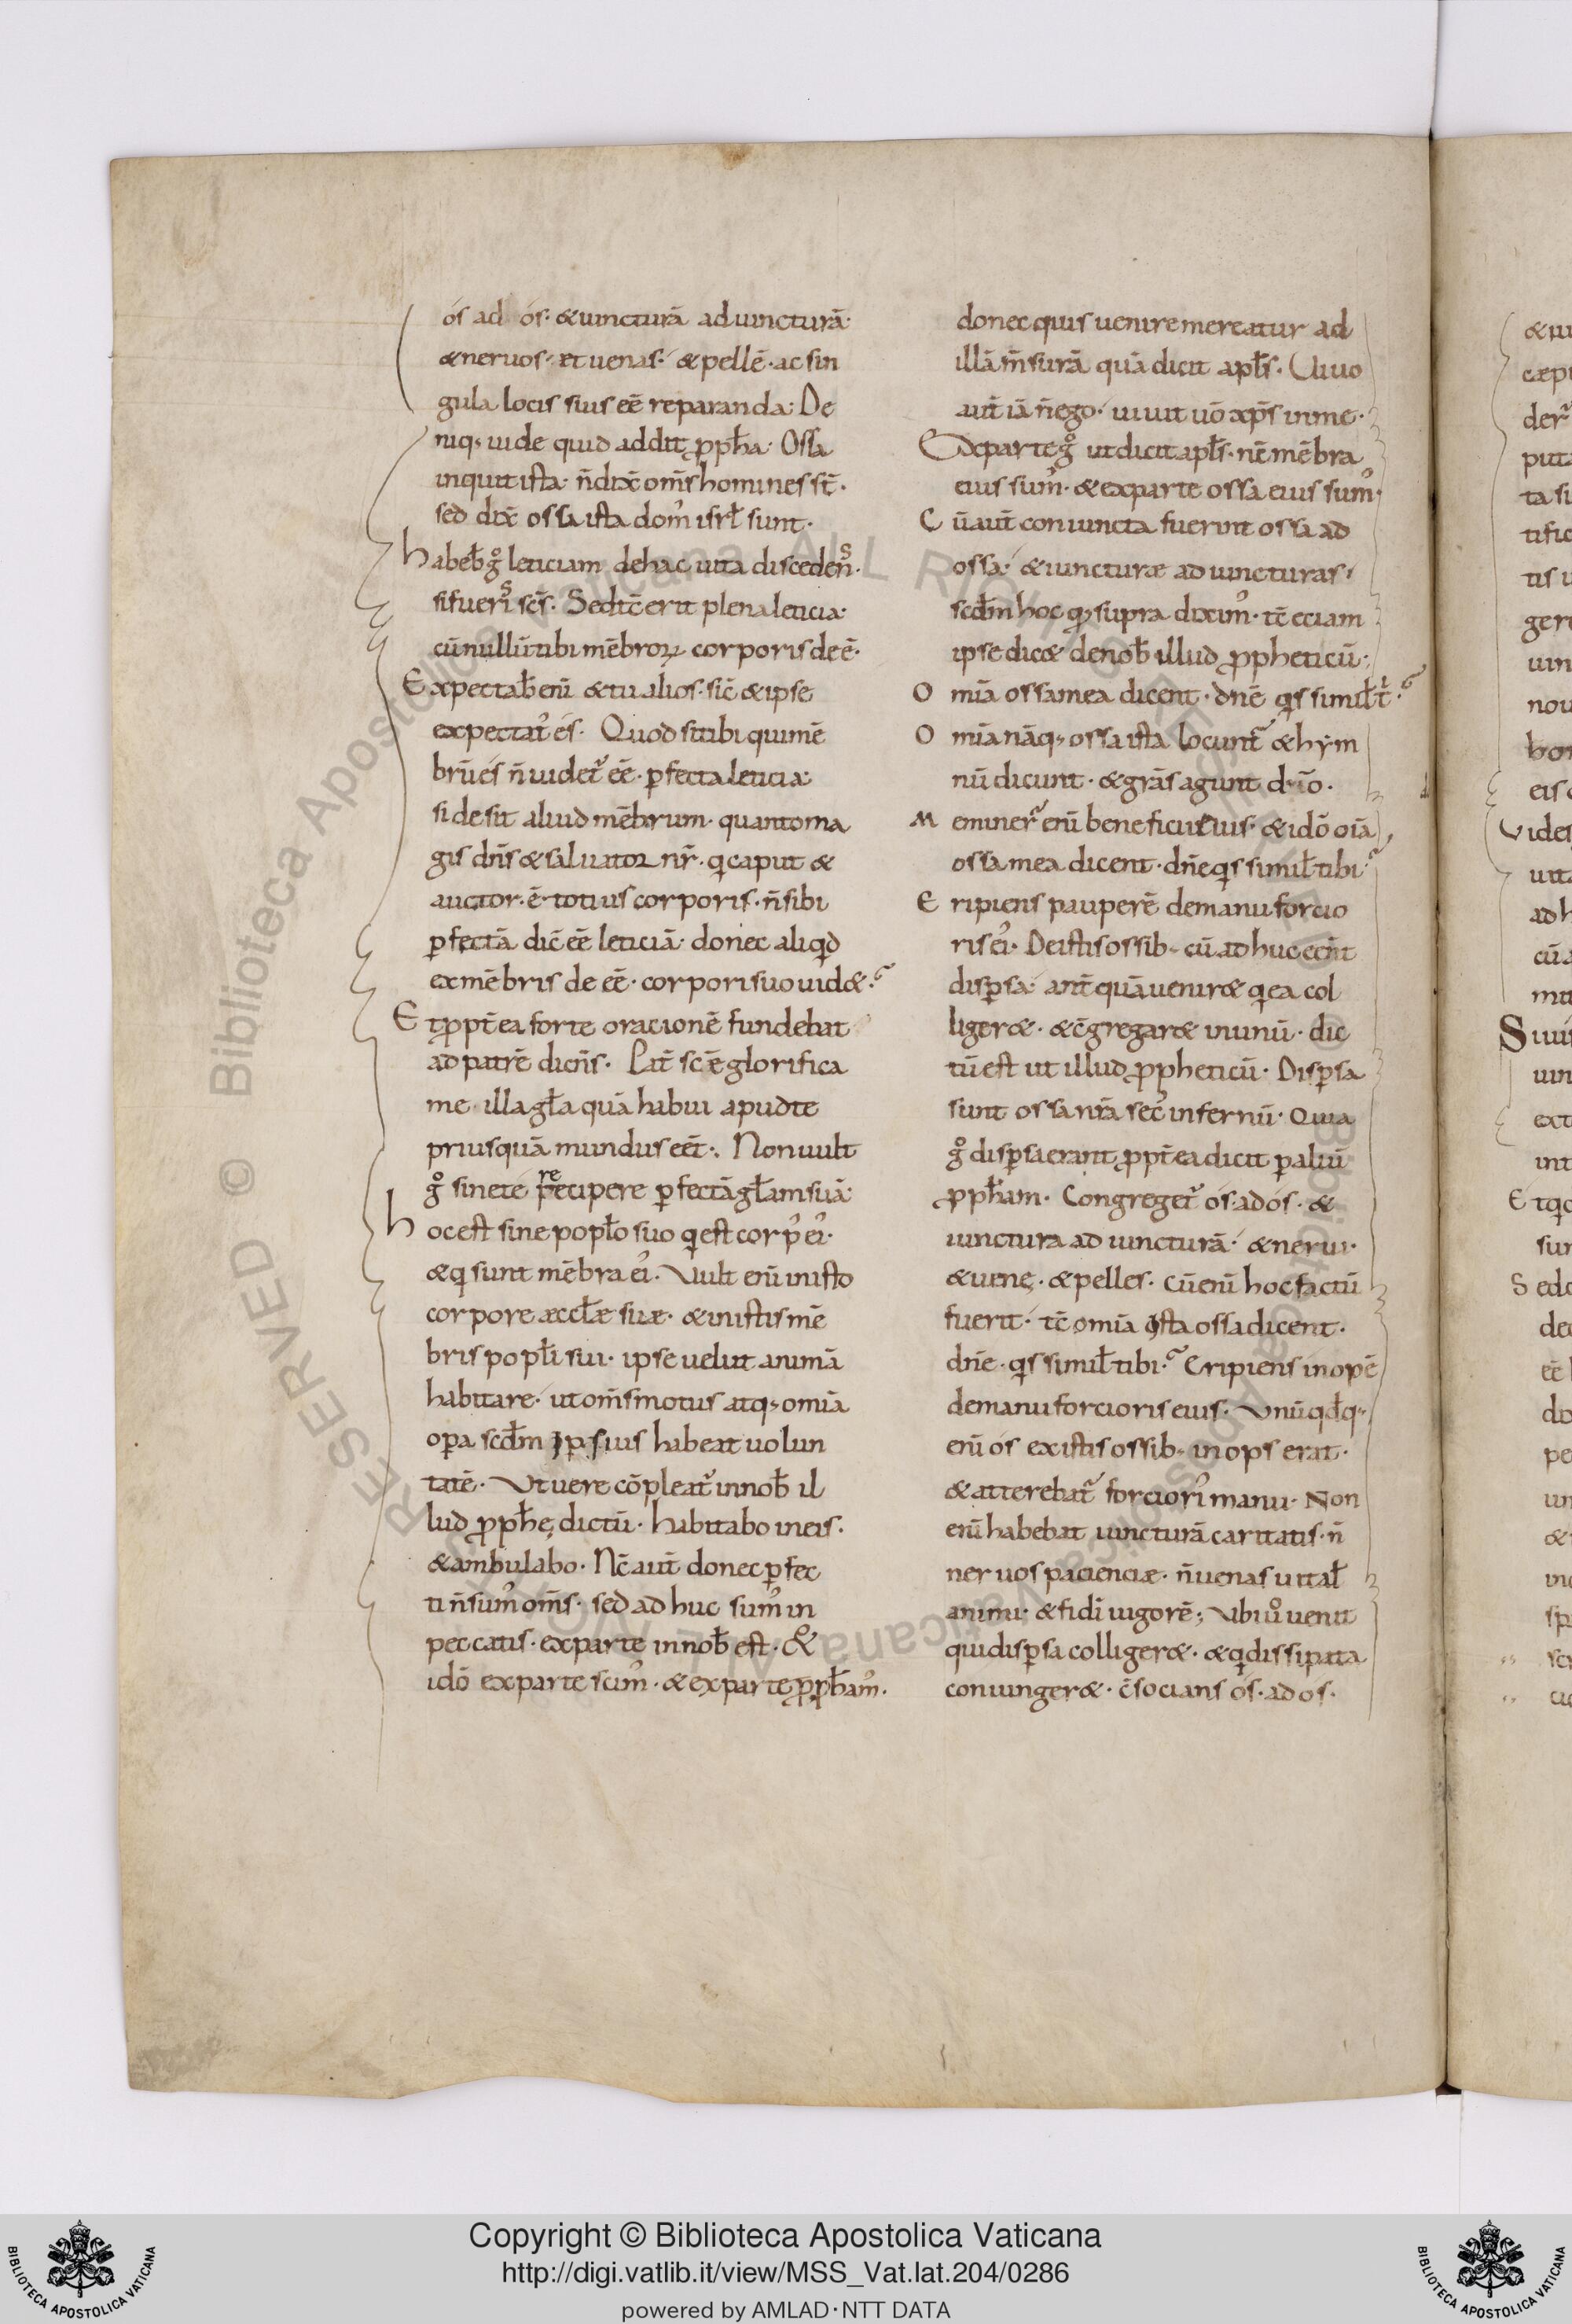 ós ad ós· &iuncturā ad iuncturā·
&neruos· et uenas· &pellē· ac sin
gula locis suis eē reparanda· De
niq; uide quid addit ꝓph̄a· Ossa
inquit ista· n̄ dix̄ om̄s homines st̄·
sed dix̄ ossa ista dom᾿ isrł sunt·
habeb̄ gͦ leticiam de hac uita discedenˢ·
si fueriˢ sc̄s· Sed tc̄ erit plena leticia·
cū nullū tibi mēbroꝝ corporis deē·
Expectab̄ enī &tu alios· sic̄ &ipse
expectat᾿ és· Quod si tibi qui mē
brū és n̄ uidet᾿ eē· ꝑfecta leticia·
si desit aliud mēbrum· quanto ma
gis dn̄s &saluator nr̄· q̇ caput &
auctor· ē· totius corporis· n̄ sibi
ꝑfectā dic̄ eē leticiā· donec aliq̇d
ex mēbris deeē· corpori suo uid&·
Et ꝓpt̄ea forte oracionē fundebat
ad patrē dicn̄s· Pat̄ sc̄ē glorifica
me· illa gła quā habui apud te
priusquā mundus eēt·, Non uult
gͦ sine te recipere ꝑfectā głam suā·
hoc est sine popło suo q̇ est corp᾿ ei᾿·
&q̇ sunt mēbra ei᾿· Vult enī in isto
corpore æccłæ suæ· &in istis mē
bris popłi sui· ipse uelut animā
habitare· ut om̄s motus atq; omīa
oꝑa scd̄m ipsius habeat uolun
tatē· Vt uere cōpleat᾿ in nob̄ il
lud ꝓph̄ę dictū· habitabo in eis·
&ambulabo· Nc̄ aut̄ donec ꝑfec
ti n̄ sum᾿ om̄s· sed adhuc sum᾿ in
peccatis· ex parte in nob̄ est· &
idō ex parte scim᾿· &ex parte ꝓph̄am᾿·
donec quis uenire mereatur ad
illā m̄surā quā dicit apłs· Uiuo
aut̄ iā n̄ ego· uiuit uō xp̄s in me·
Ex parte gͦ ut dicit apłs· nc̄ mēbra
eius sum᾿· &ex parte ossa eius sum᾿·
Cū aut̄ coniuncta fuerint ossa ad
ossa· &iuncturæ ad iuncturas·
scd̄m hoc qđ supra dixim᾿· tc̄ eciam
ipse dic& de nob̄ illud ꝓpheticū·
Omīa ossa mea dicent· dn̄e q̇s simił t᾿·
Omīa nāq; ossa ista locunt᾿ &hẏm
nū dicunt· &grās agunt dīo·
Meminer᾿ enī beneficii eius· &idō oīa
ossa mea dicent· dn̄e q̇s simił tibi·
Eripiens pauperē de manu forcio
ris ei᾿· De istis ossib; cū adhuc eēnt
disꝑsa· ant̄ quā uenir& q̇ ea col
liger&· &c̄gregar& in unū· dic
tū est ut illud ꝓpheticū· Disꝑsa
sunt ossa nr̄a sec᾿ infernū· Quia
gͦ disꝑsa erant ꝓpt̄ea dicit ꝑ aliū
ꝓph̄am· Congreget᾿ os· ad ós· &
iunctura ad iuncturā· &nerui·
&uenę· &pelles· Cū enī hoc factū
fuerit· tc̄ omīa ista ossa dicent·
dn̄e· q̇s simił tibi· Eripiens inopē
de manu forcioris eius· Vnū qđq;
enī os ex istis ossib; inops erat·
&atterebat᾿ forciori᾿ manu· Non
enī habebat iuncturā caritatis· n̄
neruos pacienciæ· n̄ uenas uitał
animi· &fidi᾿ uigorē·, Vbi uͦ uenit
qui disꝑsa colliger&· &q̇ dissipata
coniunger&· c̄socians ós· ad os·
Copyright © Biblioteca Apostolica Vaticana
http://digi.vatlib.it/view/MSS_Vat.lat.204/0286
powered by AMLAD·NTT DATA